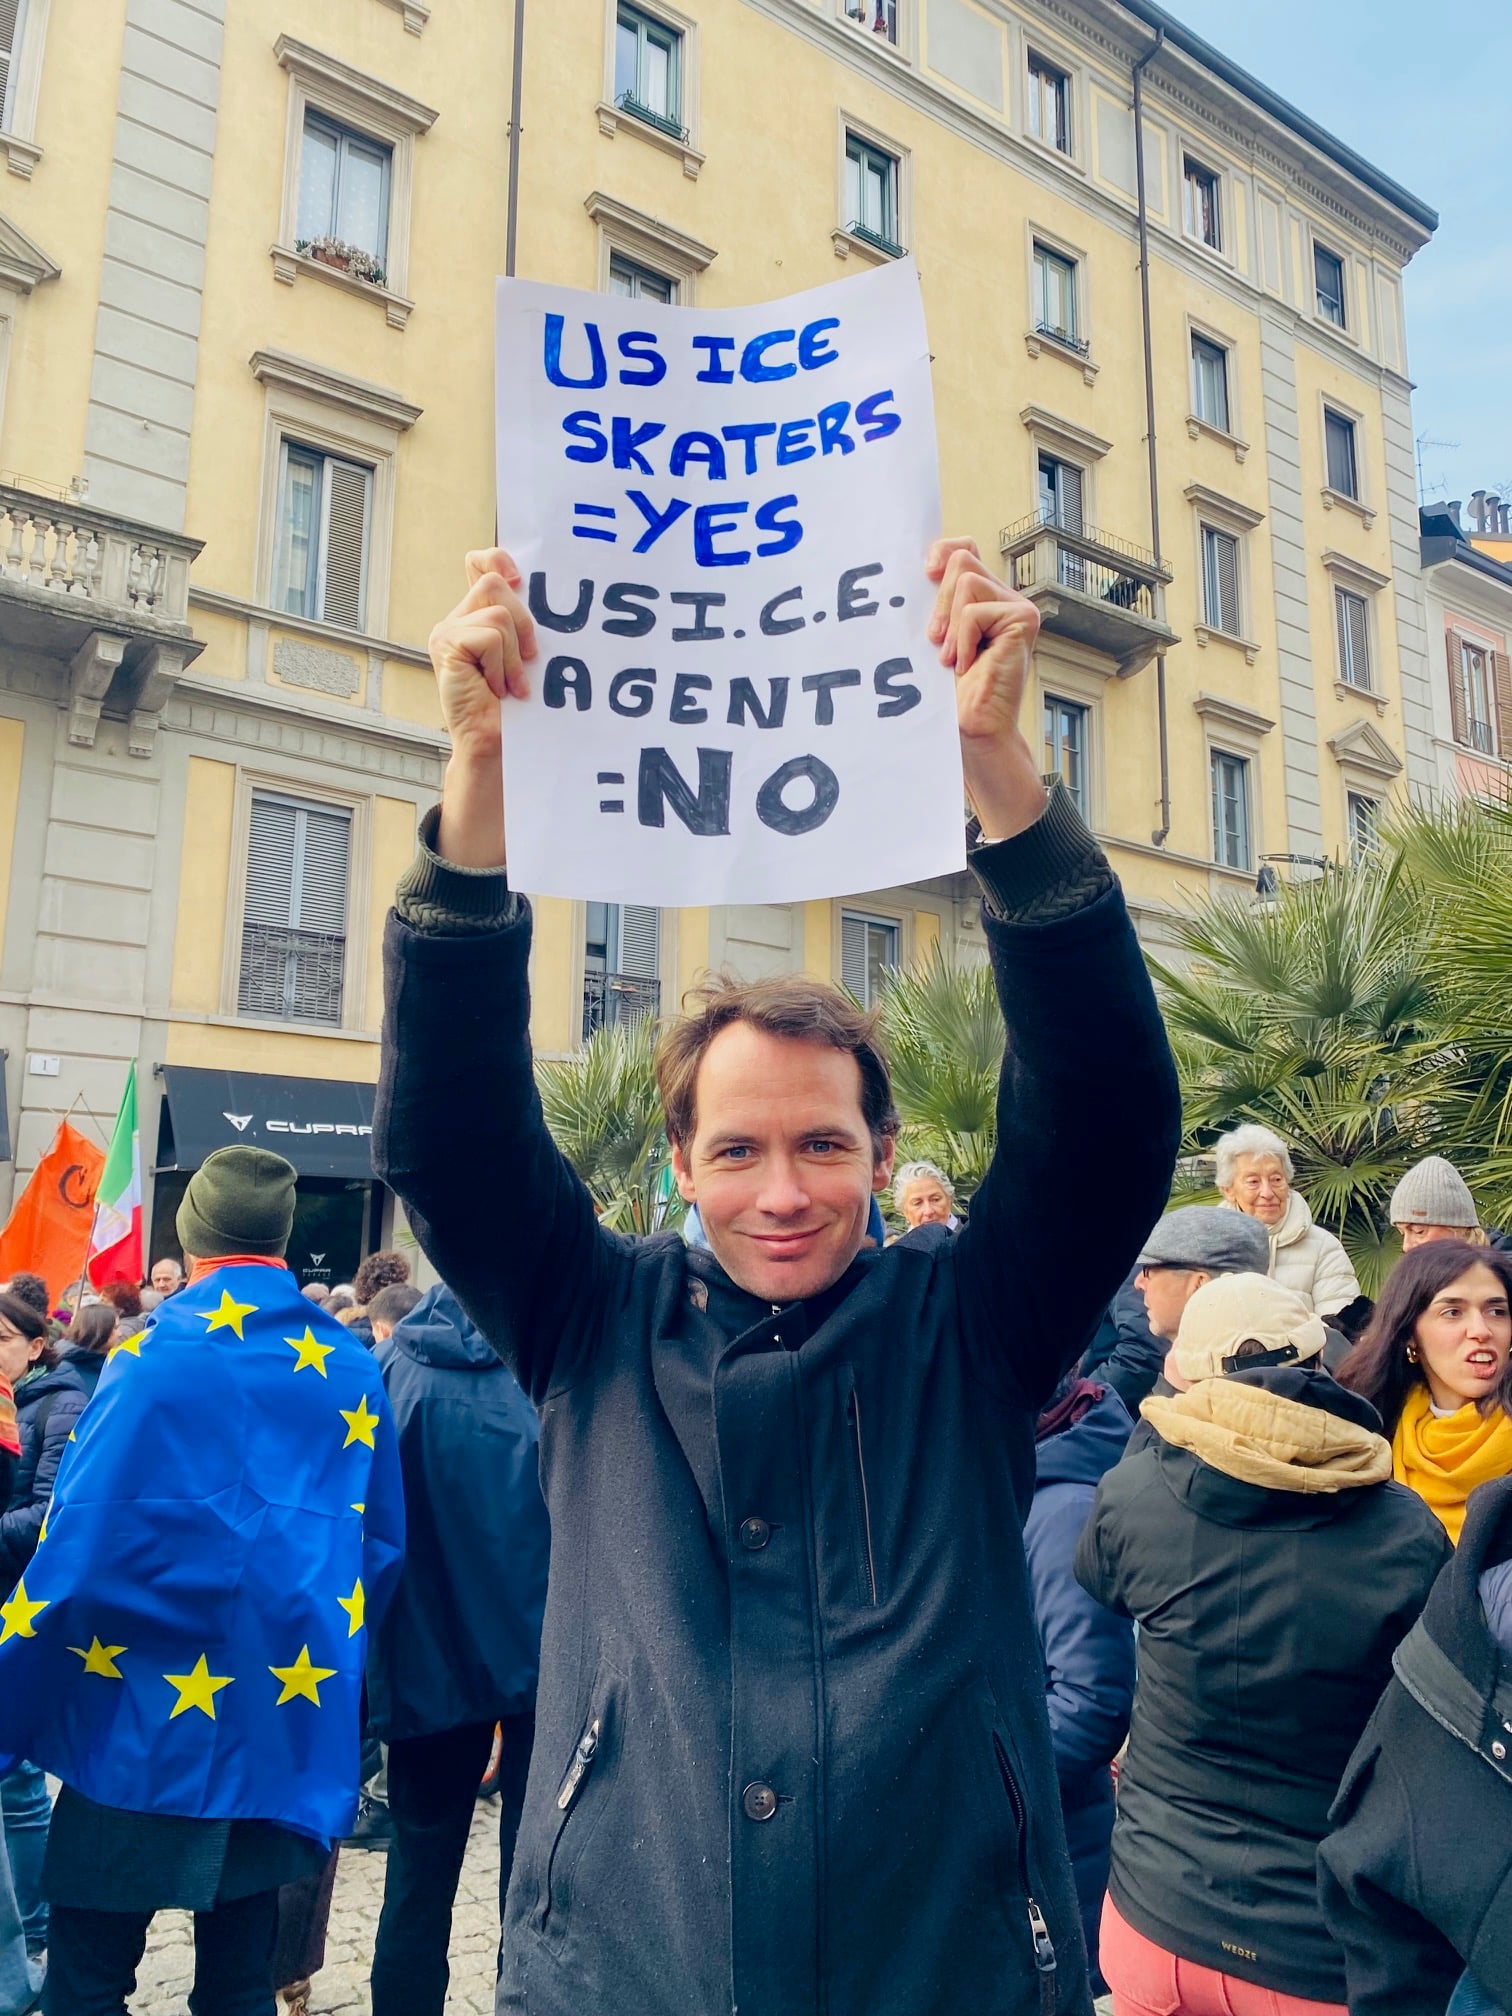 US ICE
SKATERS
=YES
US I.C.E.
AGENTS
=NO
1
CUPRA
CUPRA
WEDZE